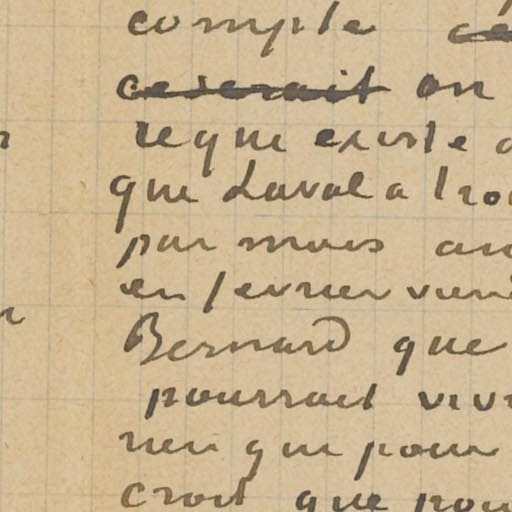 compte
ceserait on
reque existe
que Laval a
par mois
en fevrier
Bernard que
pourrait
rien que pour
croit que